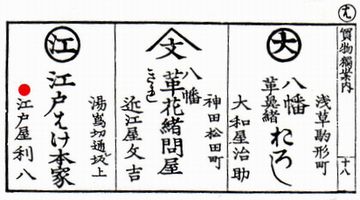 買物獨案内
十八
浅草駒形町
大
八幡
革鼻緒
おろし
大和屋治助
神田松田町
文
八幡
革花緒問屋
近江屋文吉
湯嶌切通坂上
江
江戸はけ本家
江戸屋利八